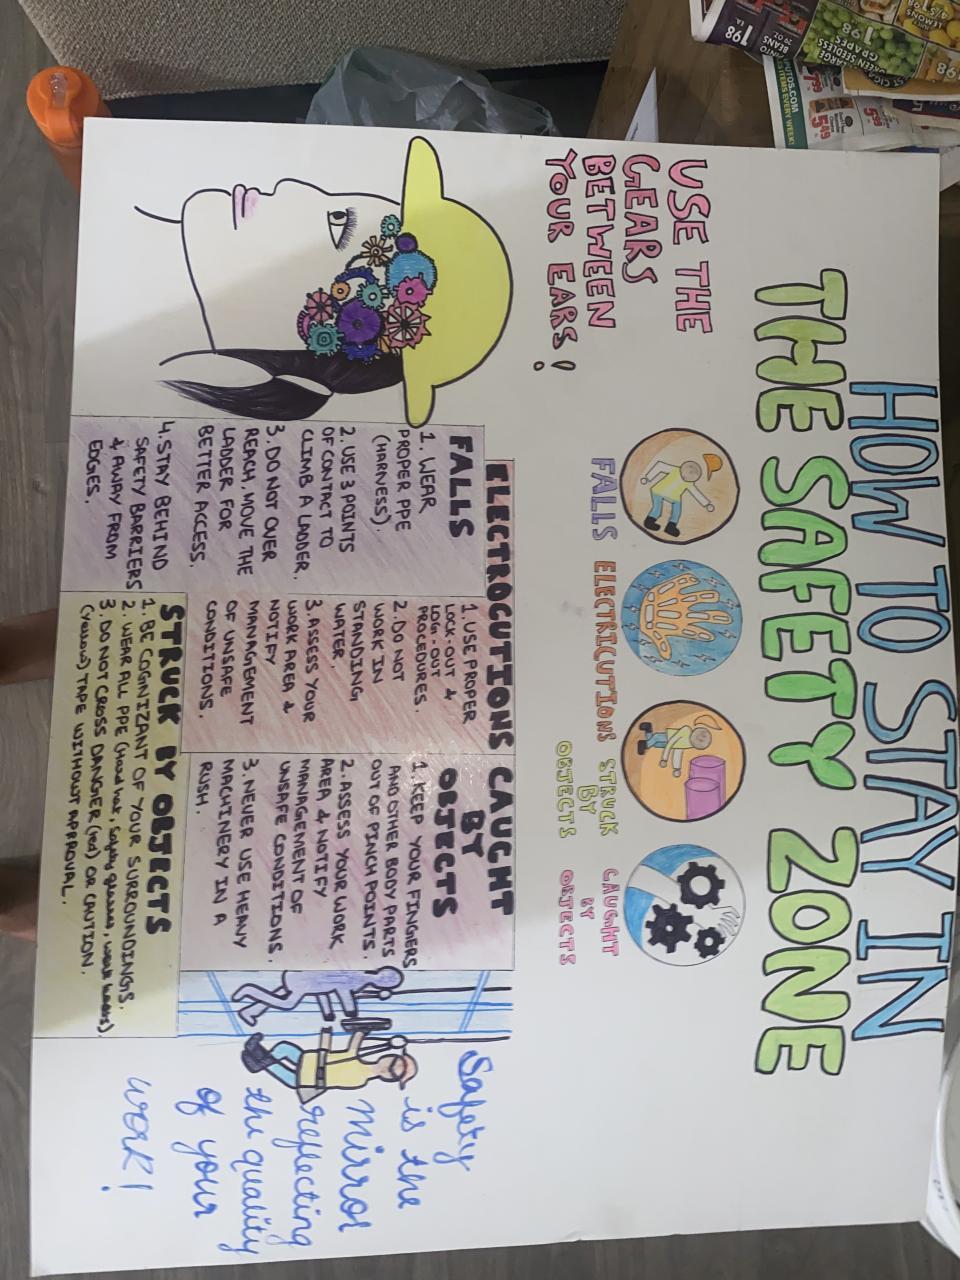 HOW TO STAY IN
THE SAFETY ZONE
USE THE
GEARS
BETWEEN
YOUR EARS!
FALLS
ELECTRICUTIONS
STRUCK
BY
OBJECTS
CAUGHT
BY
OBJECTS
FALLS
1. WEAR
PROPER PPE
(HARNESS).
2. USE 3 POINTS
OF CONTACT TO
CLIMB A LADDER.
3. DO NOT OVER
REACH, MOVE THE
LADDER FOR
BETTER ACCESS.
4. STAY BEHIND
SAFETY BARRIERS
& AWAY FROM
EDGES.
ELECTROCUTIONS
1. USE PROPER
LOCK-OUT &
LOG-OUT
PROCEDURES.
2. DO NOT
WORK IN
STANDING
WATER.
3. ASSESS YOUR
WORK AREA &
NOTIFY
MANAGEMENT
OF UNSAFE
CONDITIONS.
CAUGHT
BY
OBJECTS
1. KEEP YOUR FINGERS
AND OTHER BODY PARTS
OUT OF PINCH POINTS.
2. ASSESS YOUR WORK
AREA & NOTIFY
MANAGEMENT OF
UNSAFE CONDITIONS.
3. NEVER USE HEAVY
MACHINERY IN A
RUSH.
STRUCK BY OBJECTS
1. BE COGNIZANT OF YOUR SURROUNDINGS.
2. WEAR ALL PPE (hard hat, safety glasses, work boots).
3. DO NOT CROSS DANGER (red) OR CAUTION
(yellow) TAPE WITHOUT APPROVAL.
Safety
is the
mirror
reflecting
the quality
of your
work!
LEMONS
198
LARGE
GREEN SEEDLESS
GRAPES
198
PINTO
BEANS
29 OZ
198
EA
ITEMS EVERY WEEK!
5.49
5.99